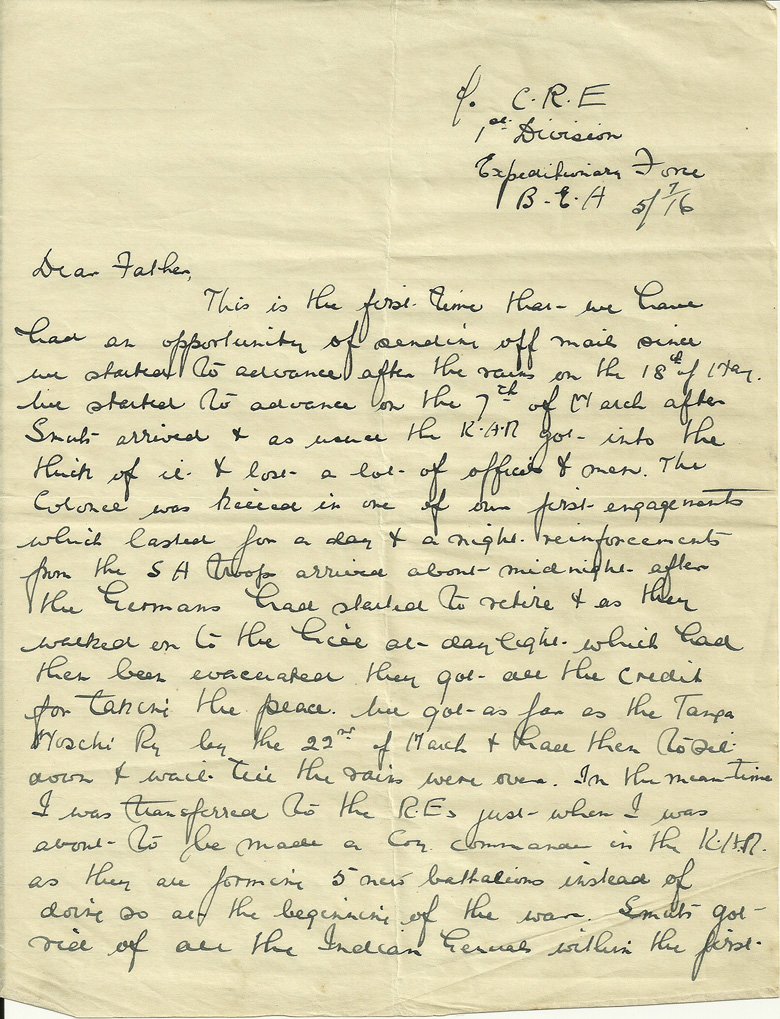 ℅. C.R.E
1st Division
Expeditionary Force
B.E.A 5/7/16
Dear Father,
This is the first time that we have
had an opportunity of sending off mail since
we started to advance after the rains on the 18th of May.
We started to advance on the 7th of March after
Smuts arrived & as usual the K.A.R got into the
thick of it & lost a lot of officers & men. The
Colonel was killed in one of our first engagements
which lasted for a day & a night. reinforcements
from the S A troops arrived about midnight after
the Germans had started to retire & as they
walked on to the hill at daylight which had
then been evacuated they got all the credit
for taking the place. We got as far as the Tanga
Moschi Ry by the 22nd of March & had then to sit
down & wait till the rains were over. In the meantime
I was transferred to the R.Es just when I was
about to be made a Coy. commander in the K.A.R.
as they are forming 5 new battalions instead of
doing so at the beginning of the war. Smuts got
rid of all the Indian Generals within the first